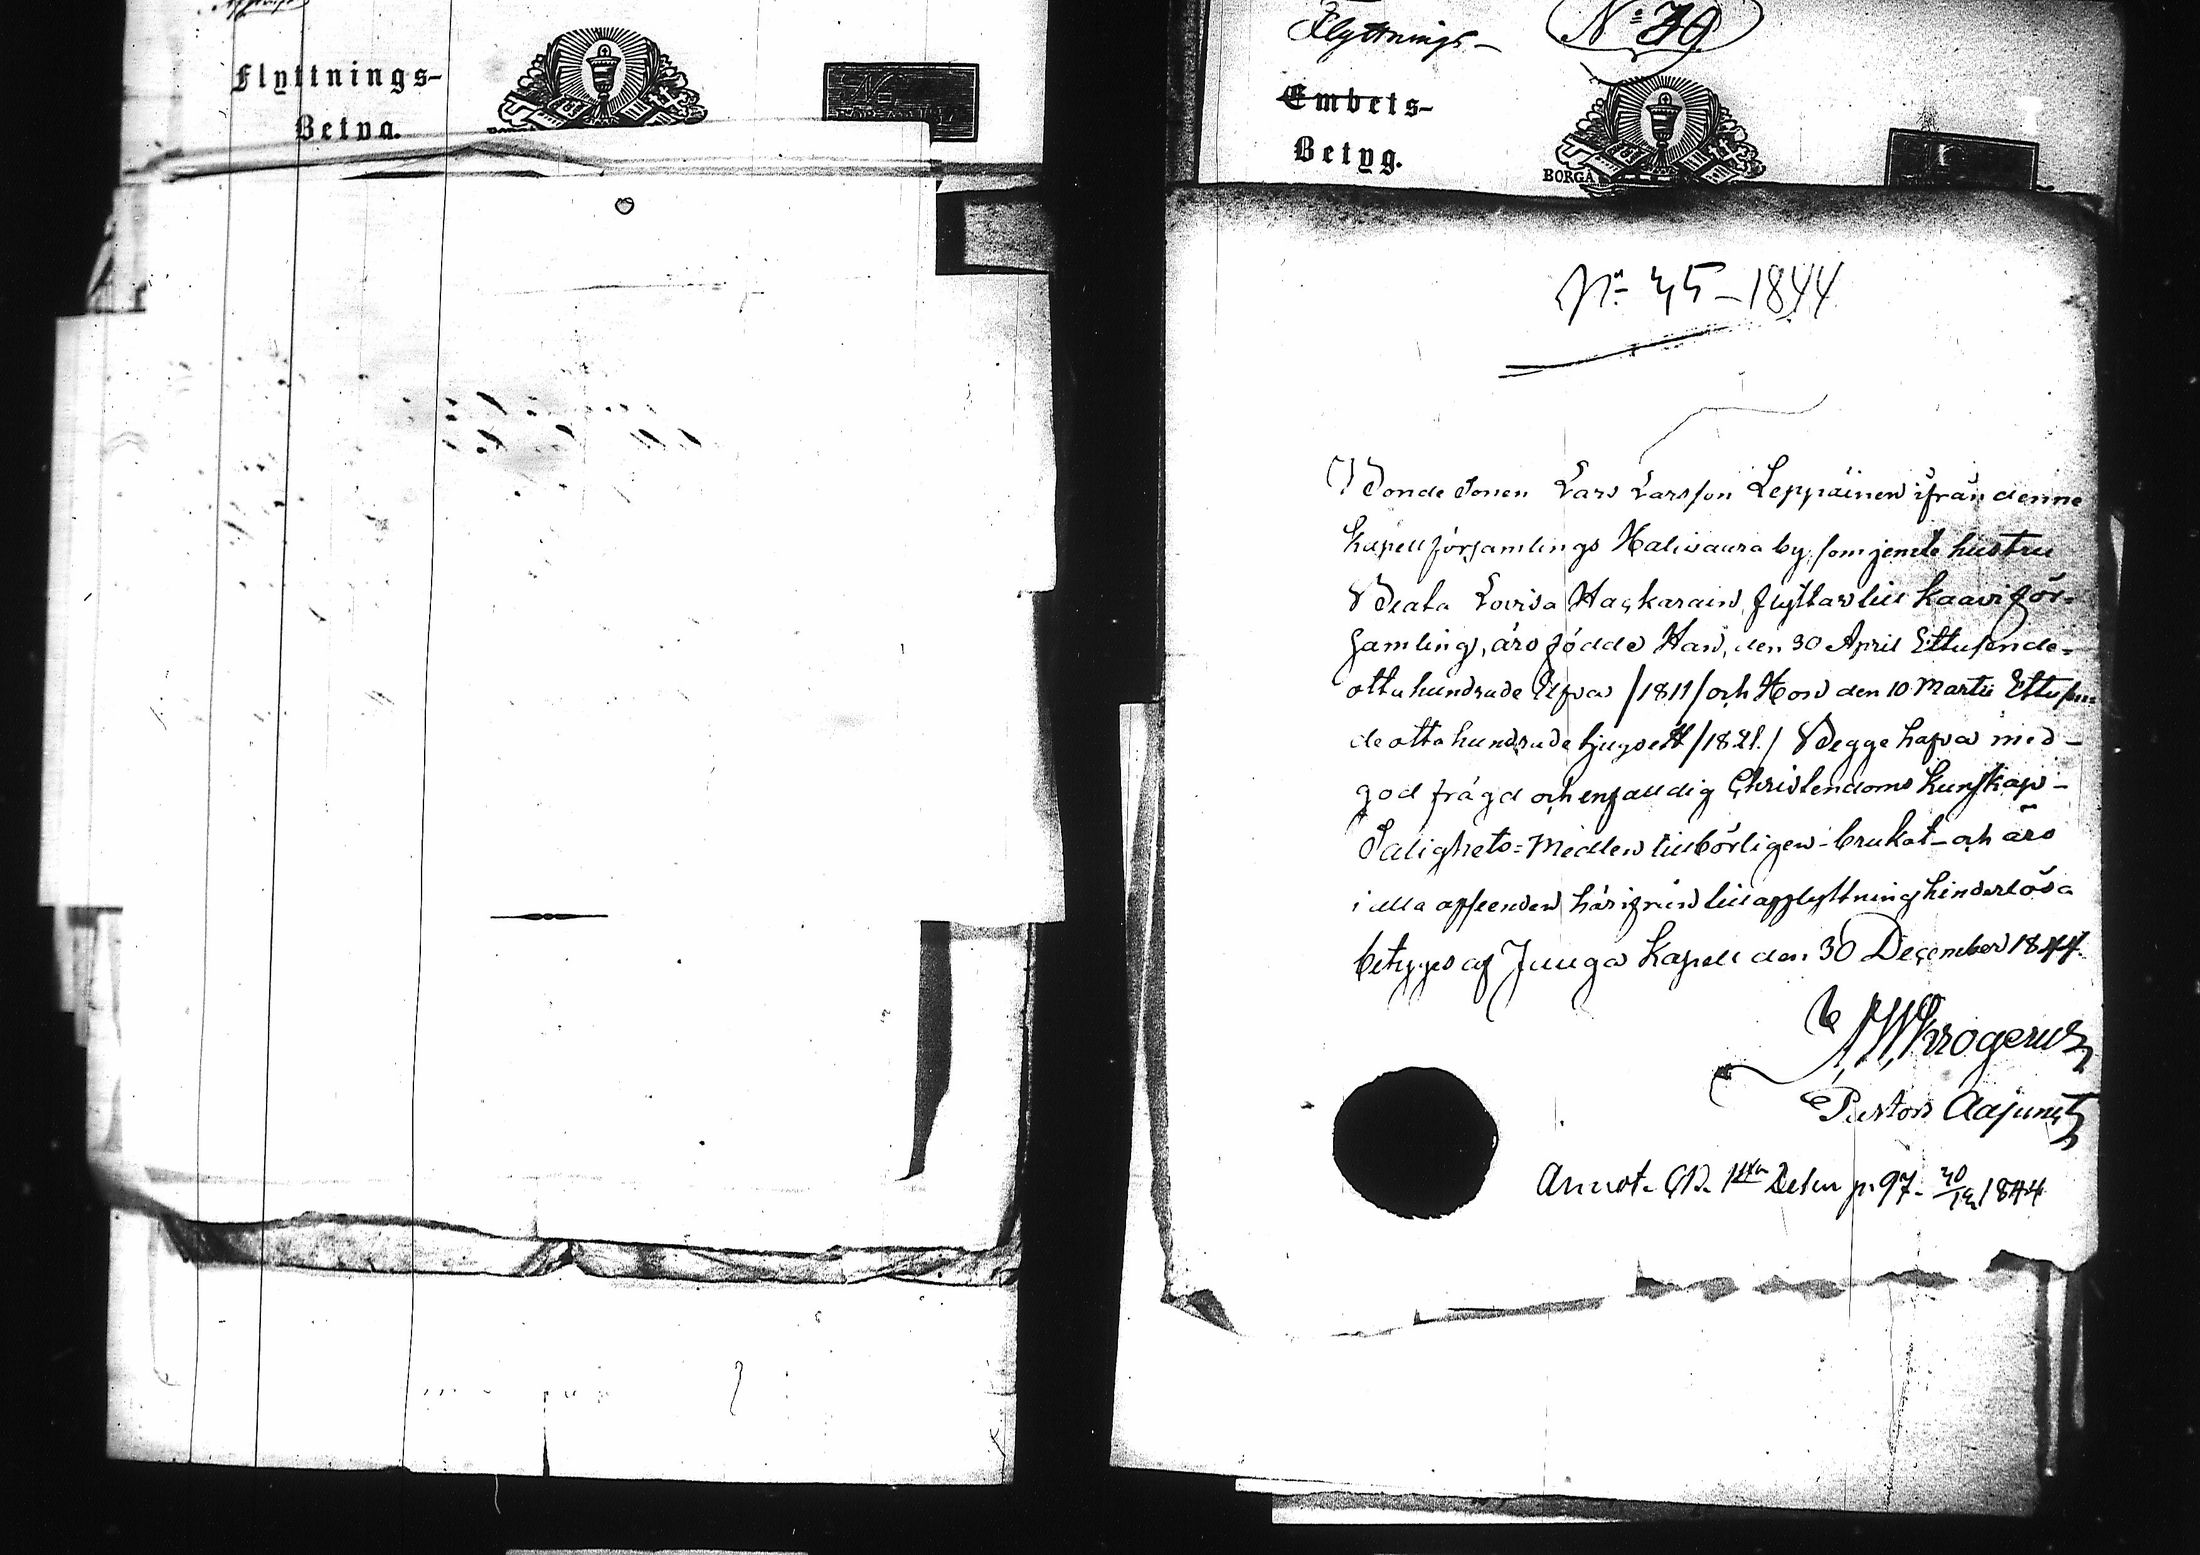 Flyttnings-
Betyg.
Flyttnings-
No 79
Embets-
Betyg.
BORGÅ
No 45-1844
Bonde Sonen Lars Larsson Leppäinen ifrån denne
Kapellförsamlings Halivaara by, som jemte hustru
Beata Lovisa Hackarain, flyttar till Kaavi för-
samling, äro födde Han, den 30 April Ettusende-
ottahundrade Elfva /1811/ och Hon den 10 Martii Ettusen
de ottahundrade tjugoett /1821./ Begge hafva med-
god frägd och enfalldig Christendoms kunskap-
Salighets=Medlen tillbörligen-brukat-och äro
i alla afseenden härifrån till afflyttning hinderlösa
betyges af Juuga Kapell den 30 December 1844.
Krogerus
Pastors Adjunct
Annot. 1sta Delen p. 97. 30/12 1844